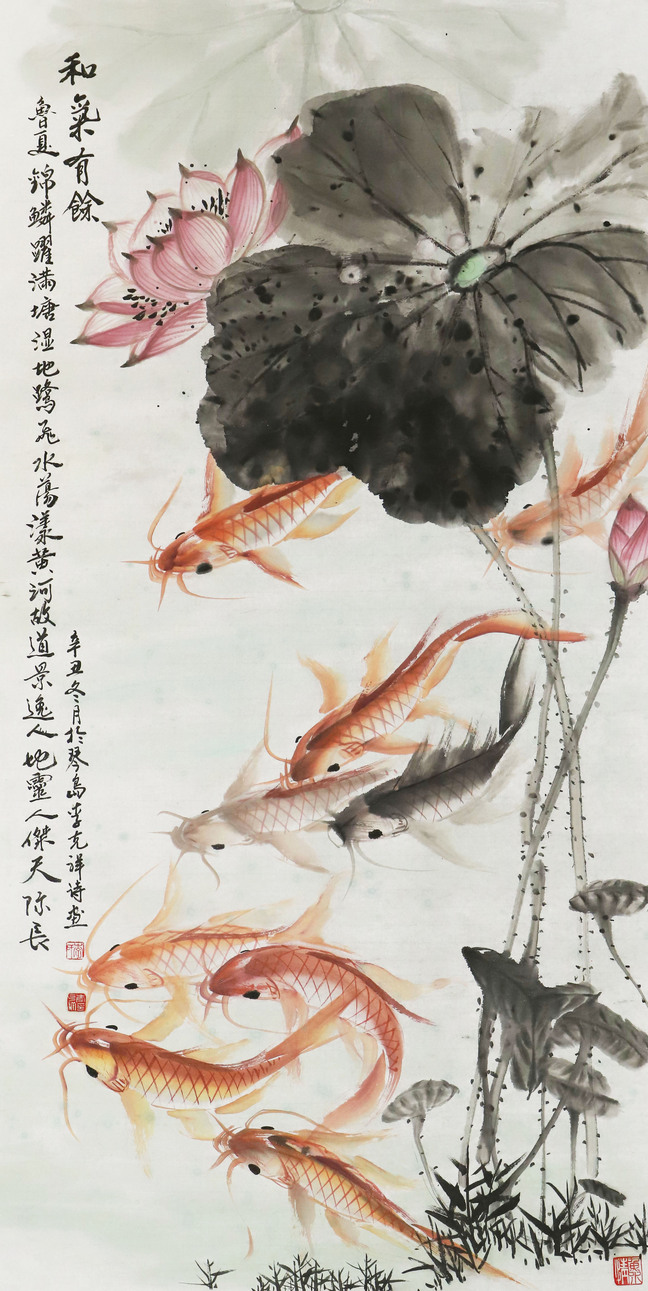 和氣有餘
魯夏錦鱗躍满塘湿地鹭飞水蕩漾黄河故道景逸人地靈人傑天际長
辛丑冬月於琴島李克祥诗画